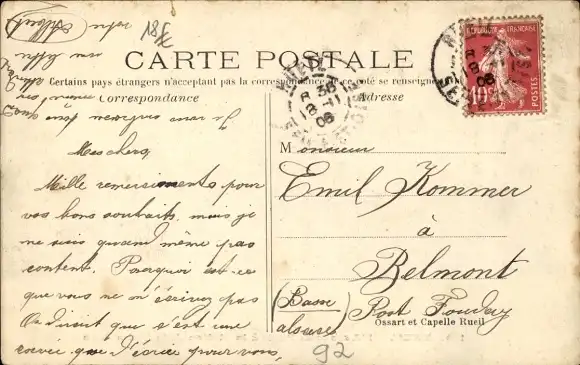 18f
CARTE POSTALE
Certains pays étrangers n'acceptant pas la correspondance de ce côté se renseigner
Correspondance
Adresse
Je vous
Mes chers,
Mille remersiements pour
vos bons souhaits, mais je
ne suis quand même pas
content. Pourquoi est-ce
que vous ne m'écrivez pas
On dirait que s'est une
corvée que d'écrire pour vous,
Monsieur
Emil Kommer
à
Belmont
(Basse Post Fouday
alsace)
Ossart et Capelle Rueil
92
RÉPUBLIQUE FRANÇAISE
10
POSTES
RUEIL
8 30
18 - 11
08
SEINE-ET-OISE